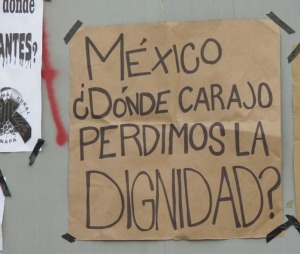 donde
ANTES?
MÉXICO
¿DÓNDE CARAJO
PERDIMOS LA
DIGNIDAD?